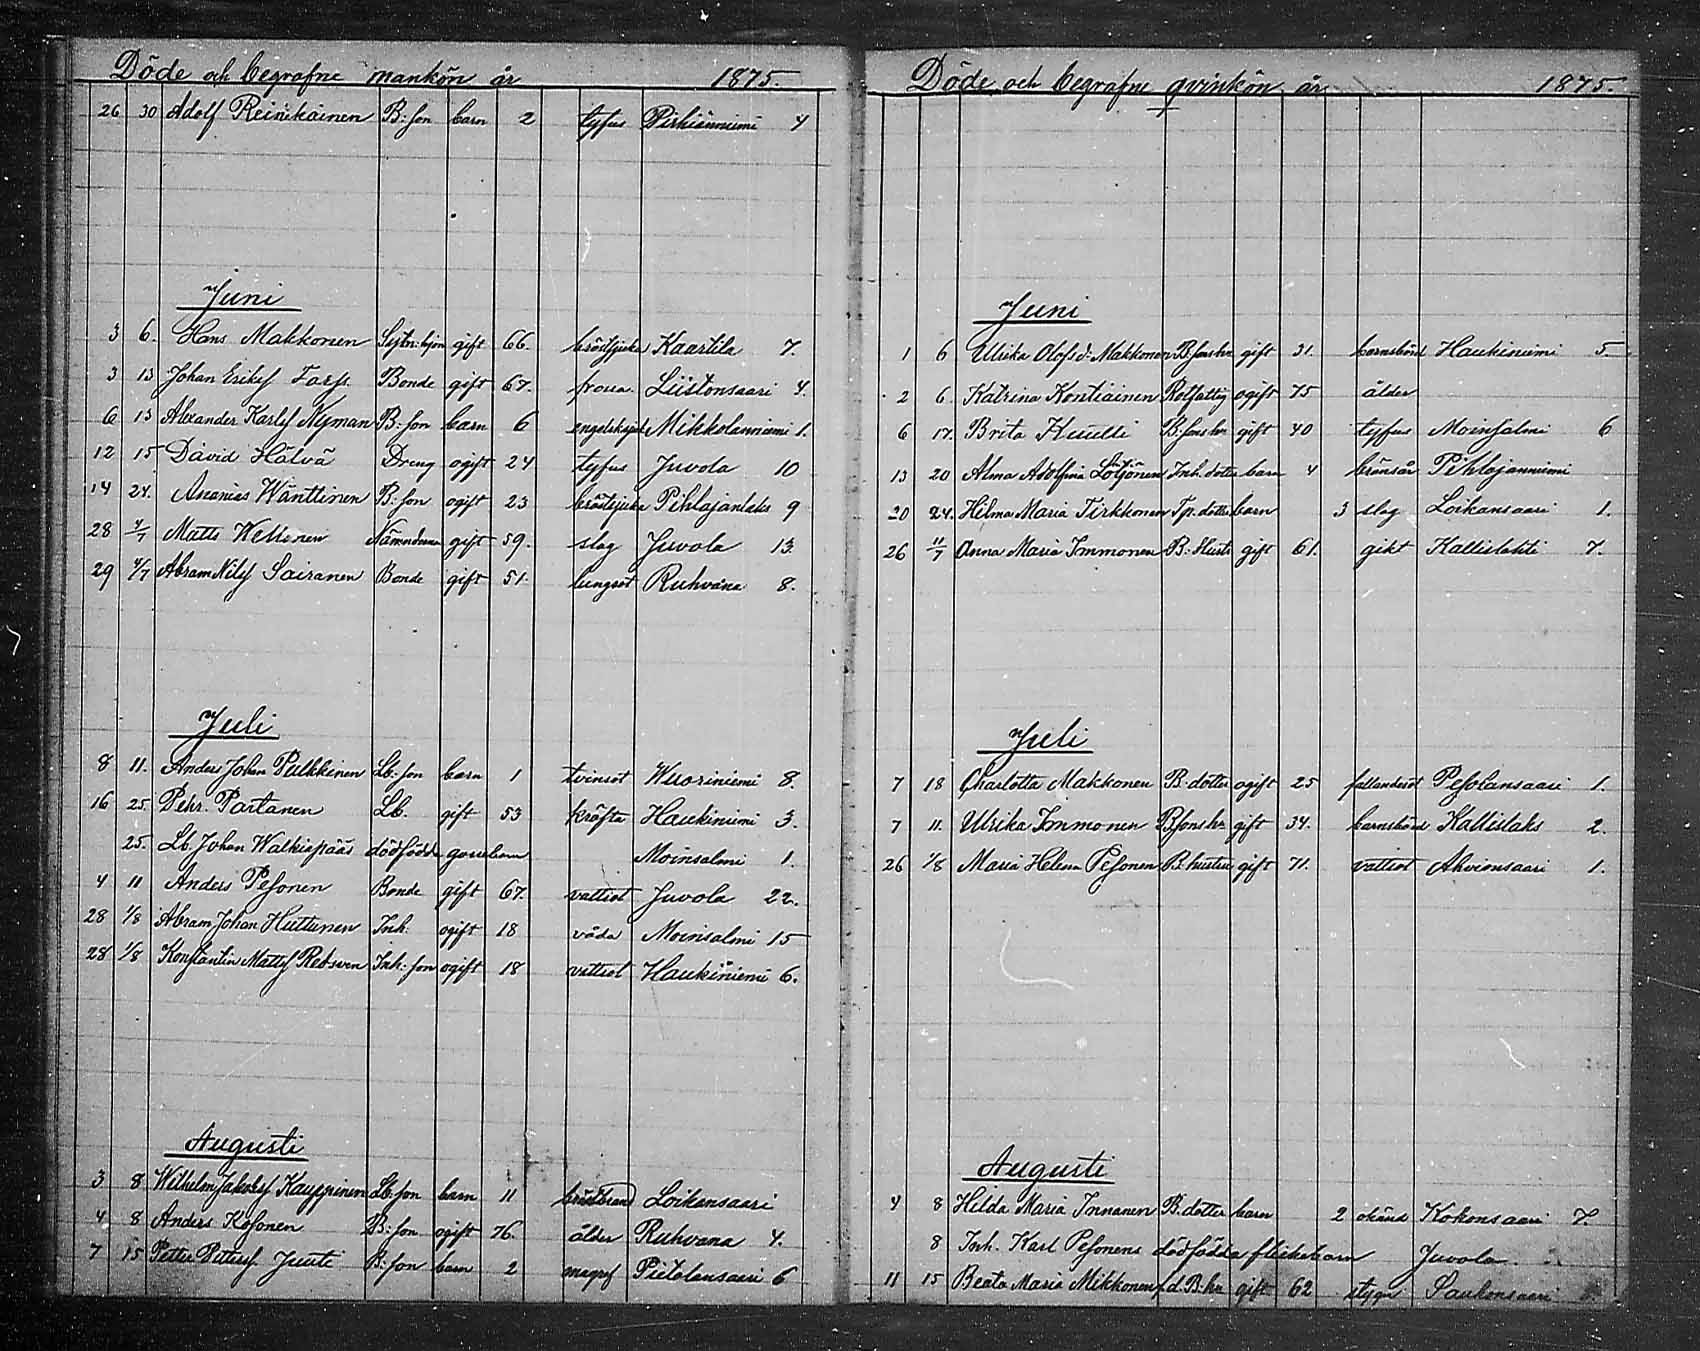 Döde och begrafne mankön år 1875.
26 30 Adolf Reinikainen B:son barn 2 tyfus Pirhiänniemi 4
Juni
3 6. Hans Makkonen gift 66. bröstsjuka Kaartila 7.
3 13 Johan Eriksf Gift 67. frossa Liistonsaari 4.
6 13 Alexander Karlsf Nyman B:son barn 6 Mikkolanniemi 1.
12 15 David Hälvä Dreng ogift 24 tyfus Juvola 10
14 24. Ananias Wänttinen B:son ogift 23 bröstsjuka Pihlajanlaks 9
28 4/7 Matts gift 59. slag Juvola 13.
29 4/7 Abram Nilsf Sairanen Bonde gift 51. lungsot Ruhvana 8.
Juli
8 11. Anders Johan Pulkkinen Lb:son barn 1 tvinsot Wuoriniemi 8.
16 25. Pehr Partanen Lb. gift 53 kräfta Haukiniemi 3.
25. Lb. Johan Walkiapääs dödfödda gossebarn Moinsalmi 1.
4 11 Anders Pesonen Bonde gift 67. vattsot Juvola 22.
28 1/8 Abram Johan Huttunen Inh: ogift 18 våda Moinsalmi 15
28 1/8 Konstantin Mattsf Inh:son ogift 18 vattsot Haukiniemi 6.
Augusti
3 8 Wilhelm Jakobsf Kauppinen Lb:son barn 11 Loikansaari
4 8 Anders Kosonen B:son ogift 76. ålder Ruhvana 4.
7 15 Petter Pettersf Juuti B:son barn 2 Pietolansaari 6
Döde och begrafne qvinkön år 1875.
Juni
1 6 Ulrika Olofsd: Makkonen B.sons hu gift 31. barnsbörd Haukiniemi 5.
2 6. Katrina Kontiainen Rotfattig ogift 75 ålder
6 17. Brita B:sons hu gift 40 tyfus Moinsalmi 6
13 20 Alma Adolfina Lötjönen Inh. dotter barn 4 Pihlajanniemi
20 24. Hilma Maria Tirkkonen Tp. dotter barn 3 slag Loikansaari 1.
26 11/7 Anna Maria Immonen B: Hustr gift 61. gikt Kallislahti 7.
Juli
7 18 Charlotta Makkonen B. dotter ogift 25 fallandesot Pesolansaari 1.
7 11. Ulrika Immonen B.sons hu gift 34. barnsbörd Kallislaks 2.
26 1/8 Maria Helena Pesonen B. hustru gift 71. vattsot Ahvionsaari 1.
Augusti
4 8 Hilda Maria Innanen B. dotter barn 2 okänd Kokonsaari 7.
8 Inh. Karl Pesonens dödfödda flickebarn Juvola
11 15 Beata Maria Mikkonen f.d. B:hu gift 62 stygn Saukonsaari